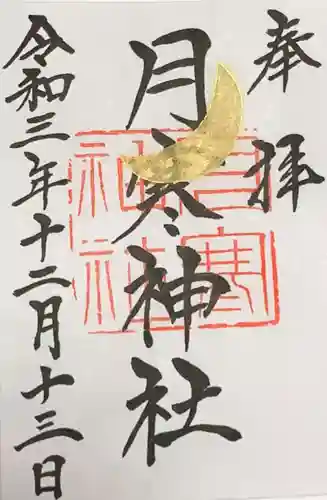 奉拝
月寒神社
令和三年十二月十三日
月寒
神社